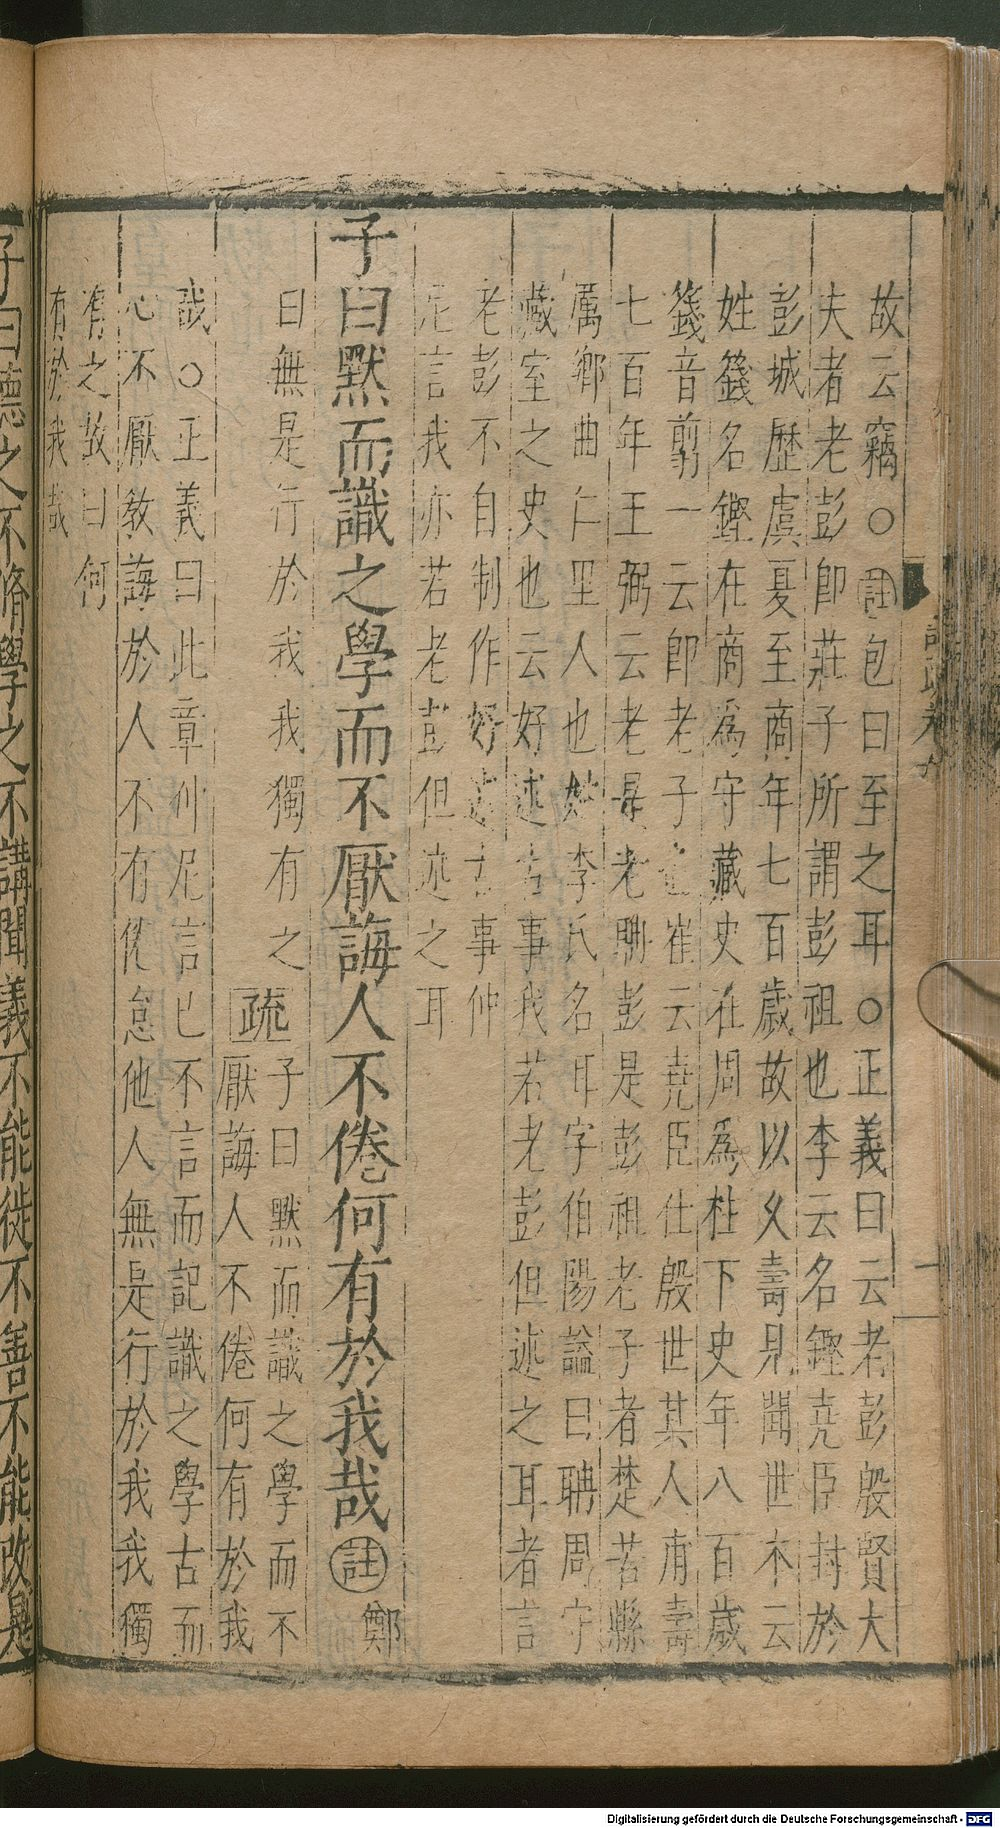 故云竊○註包曰至之耳○正義曰云老彭殷賢大
夫者老彭卽莊子所謂彭祖也李云名鏗堯臣封於
彭城歷虞夏至商年七百歲故以久壽見聞世本云
姓籛名鏗在商爲守藏史在周爲柱下史年八百歲
籛音翦一云卽老子也崔云堯臣仕殷世其人甫壽
七百年王弼云老是老聃彭是彭祖老子者楚苦縣
厲鄉曲仁里人也姓李氏名耳字伯陽謚曰聃周守
藏室之史也云好述古事我若老彭但述之耳者言
老彭不自制作好述古事仲
尼言我亦若老彭但述之耳
子曰默而識之學而不厭誨人不倦何有於我哉註鄭
曰無是行於我我獨有之疏子曰默而識之學而不
厭誨人不倦何有於我
哉○正義曰此章仲尼言已不言而記識之學古而
心不厭敎誨於人不有倦怠他人無是行於我我獨
有之故曰何
有於我哉
子曰德之不脩學之不講聞義不能徙不善不能改是
Digitalisierung gefördert durch die Deutsche Forschungsgemeinschaft - DFG